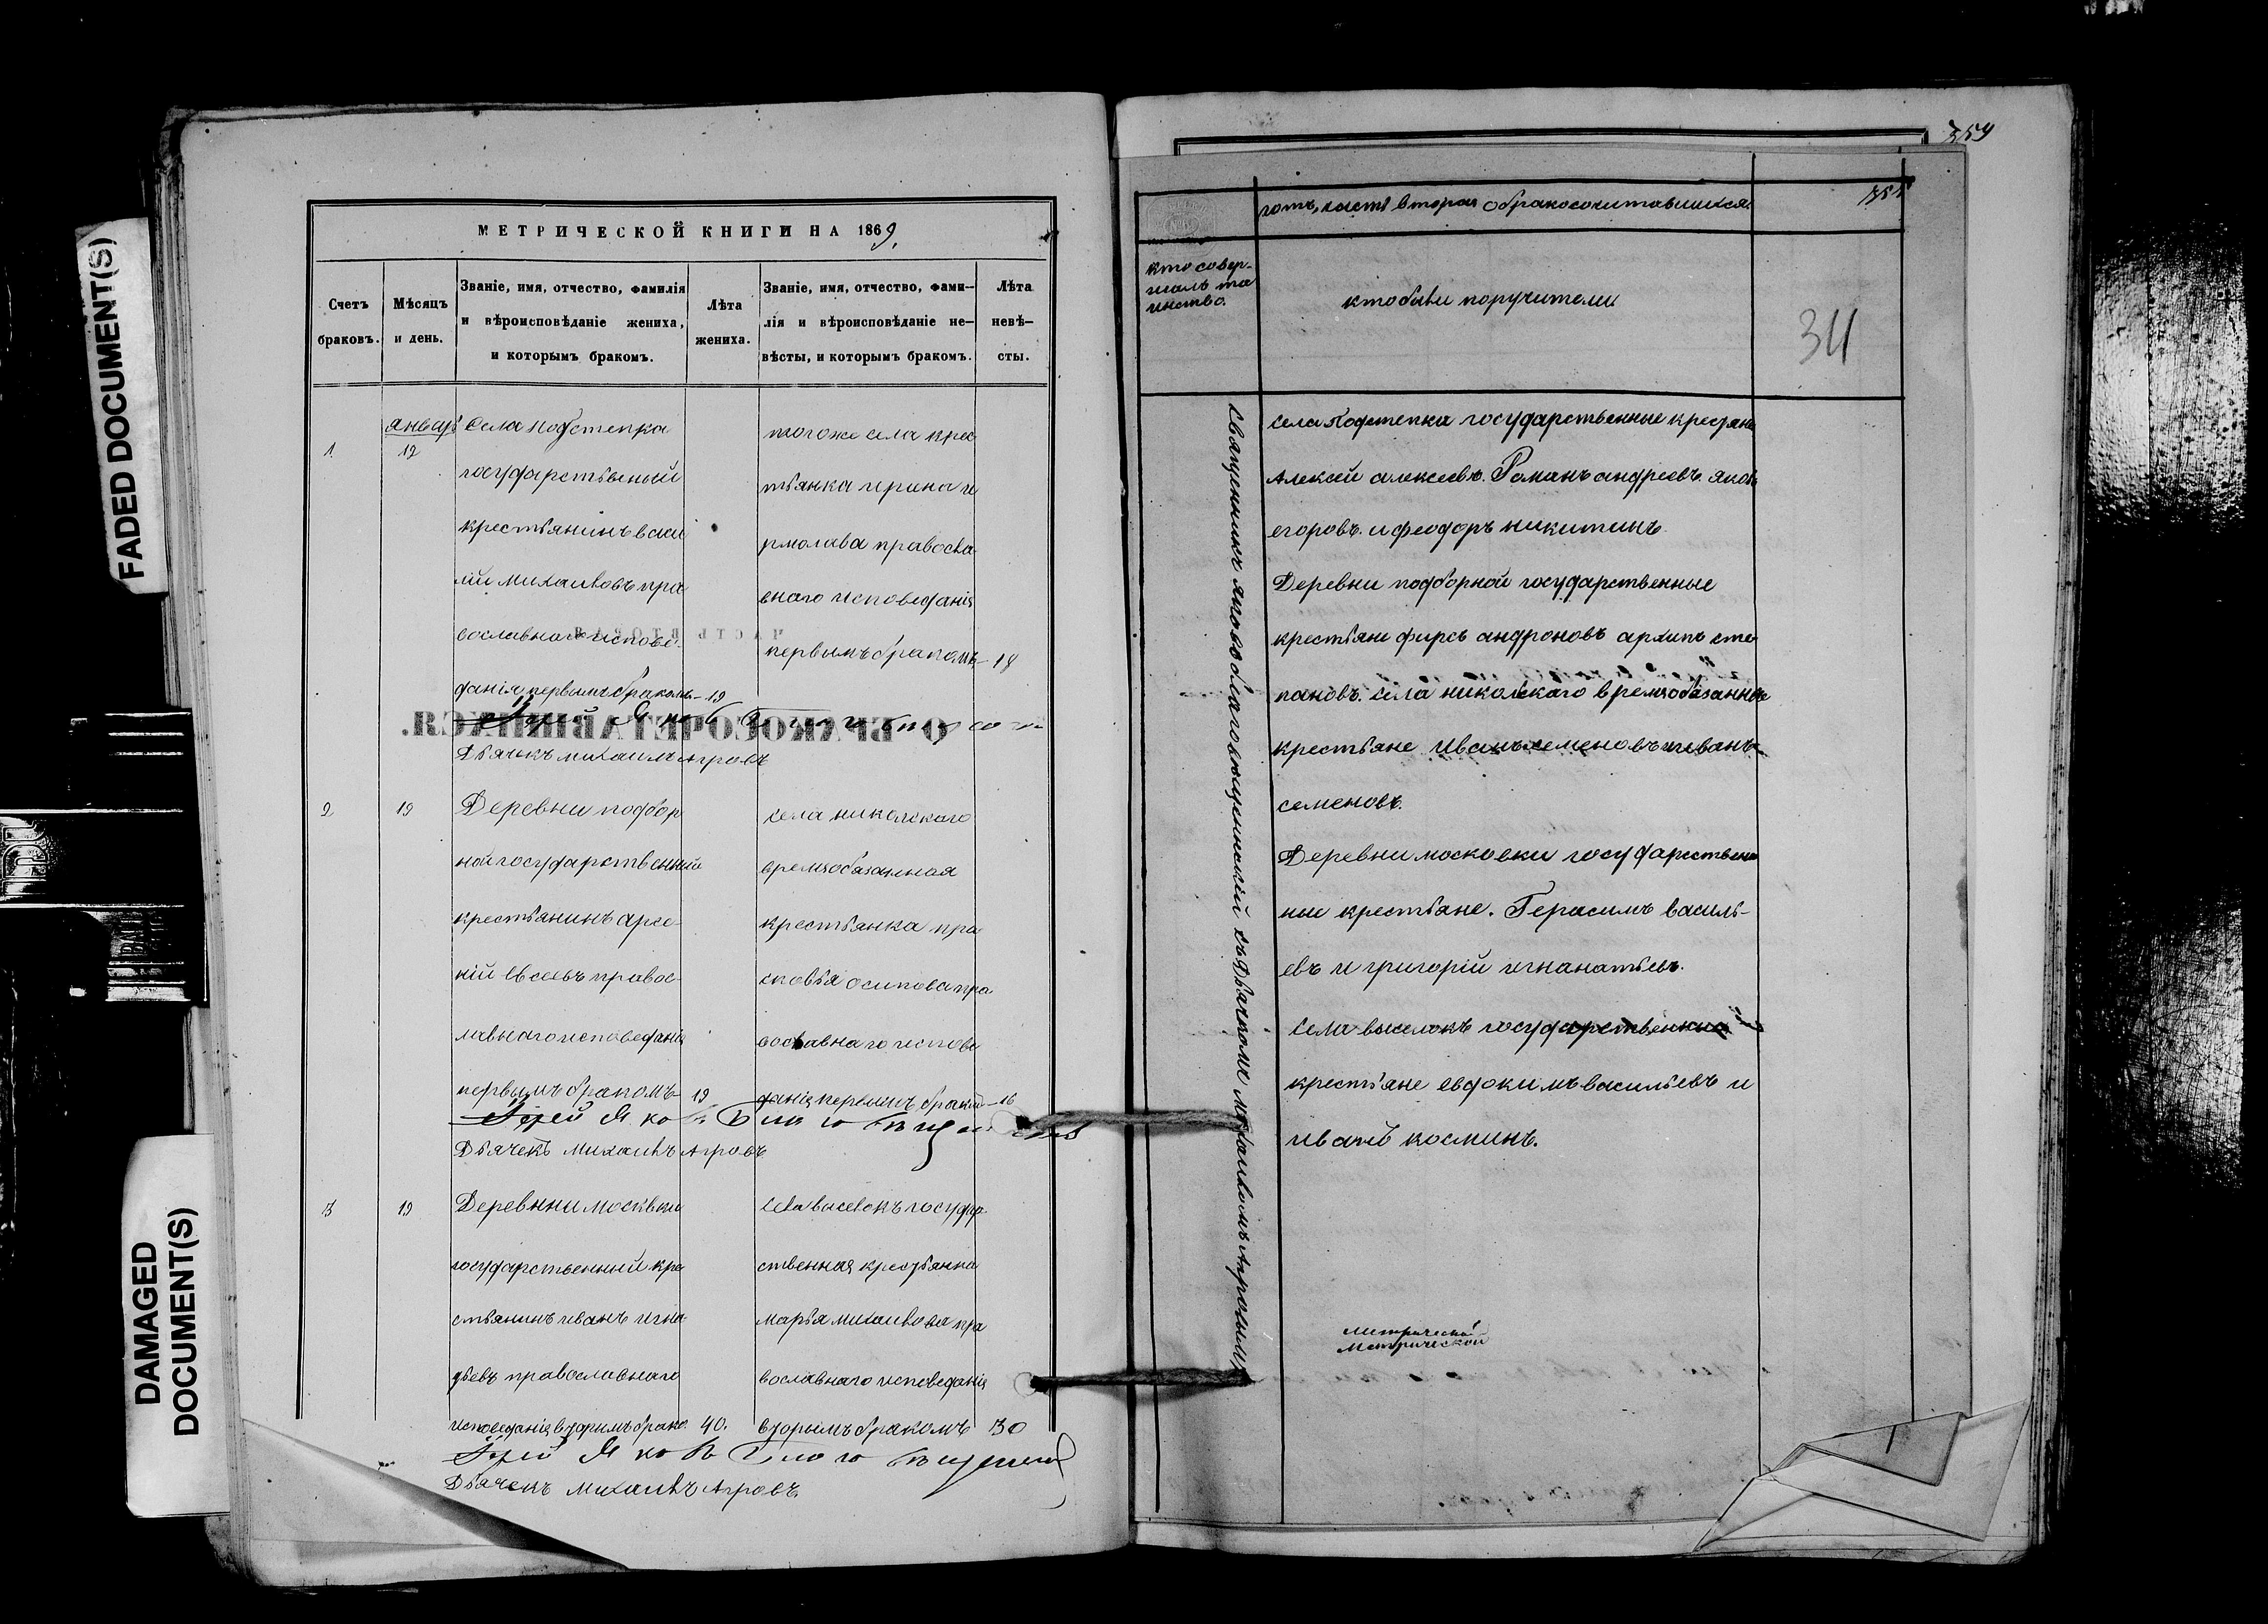 FADED DOCUMENT(S)
DAMAGED
DOCUMENT(S)
МЕТРИЧЕСКОЙ КНИГИ НА 1869,
Счетъ
браковъ.
Мѣсяцъ
и день.
Званіе, имя, отчество, фамилія
и вѣроисповѣданіе жениха,
и которымъ бракомъ.
Лѣта
жениха.
Званіе, имя, отчество, фами-
лія и вѣроисповѣданіе не-
вѣсты, и которымъ бракомъ.
Лѣта
невѣ-
сты.
1
январь
12
Села Подстепка
государствѣный
крестьянинъ васи
лій михаиловъ пра
вославнаго исповѣ
данія первымъ бракомъ - 19
тогоже села крес
тьянка ирина и
рмолава правосла
внаго исповеданія
первымъ бракомъ - 18
Іерей Яковъ
Дьячекъ михаилъ Агровъ
2
19
Деревни подбор
ной государственный
крестьянинъ арсе
ній евсеевъ правос-
лавнаго исповеданія
первымъ бракомъ 19
села николскаго
времяобазанная
крестьянка пра
сковья осипова пра
вославнаго испове
данія первымъ бракомъ - 16
Іерей Яковъ Благовещенскій
Дьячекъ Михаилъ Агровъ
3
19
Деревни москвки
государственный кре
стьянинъ иванъ игна
тьевъ православнаго
исповеданія вторимъ брако. 40.
села выселокъ госуда
ственная крестьянка
марья михаилова пра
вославнаго исповеданія
вторымъ бракомъ 30
Іерей Яковъ Благовещенскій
Дьячекъ Михаилъ Агровъ
359
готъ, часть вторая обракосочитавшихся.
кто совер-
шалъ та
инство.
кто были поручители
34
Священникъ яковъ благовещенскій съ Дьячкомъ михаиломъ Агровымъ
Села Подстепки государственные крестяне
Алексей алексеевъ. Романъ андреевъ. яковъ
егоровъ. и феодоръ никитинъ
Деревни подборной государственные
крестьяне фирсъ андроновъ архипъ сте
пановъ. села николскаго времяобазанные
крестьяне Иванъ семеновъ и иванъ
семеновъ.
Деревни московки государствен
ные крестьяне. Герасимъ василь-
евъ и григорій игнанатьевъ.
Села выселокъ государственныя
крестьяне евдокимъ васильевъ и
иванъ косминъ.
Метрической
Метрической